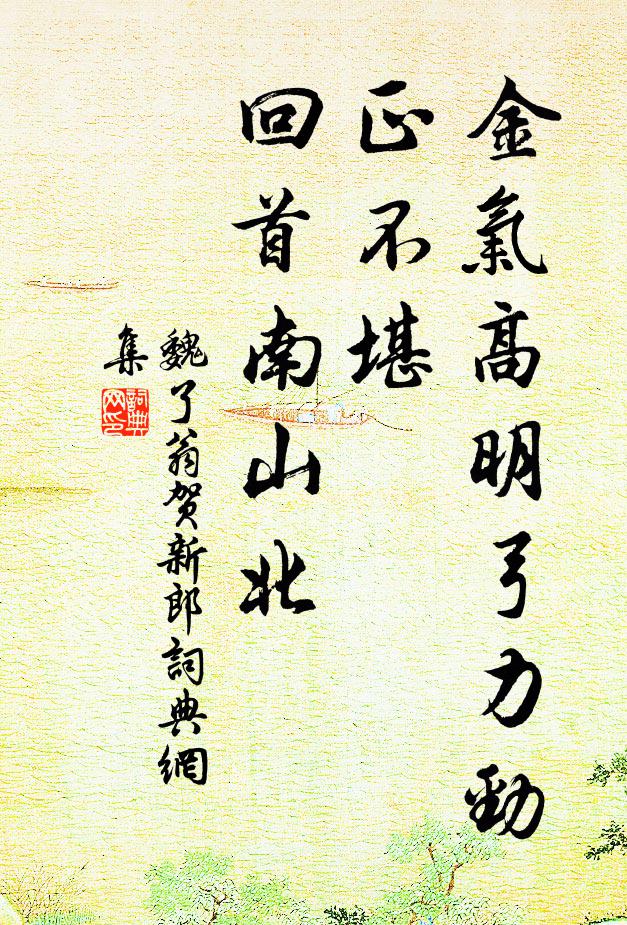 金氣高明弓力勁
正不堪
回首南山北
魏了翁贺新郎詞典網
集
詞典
网印